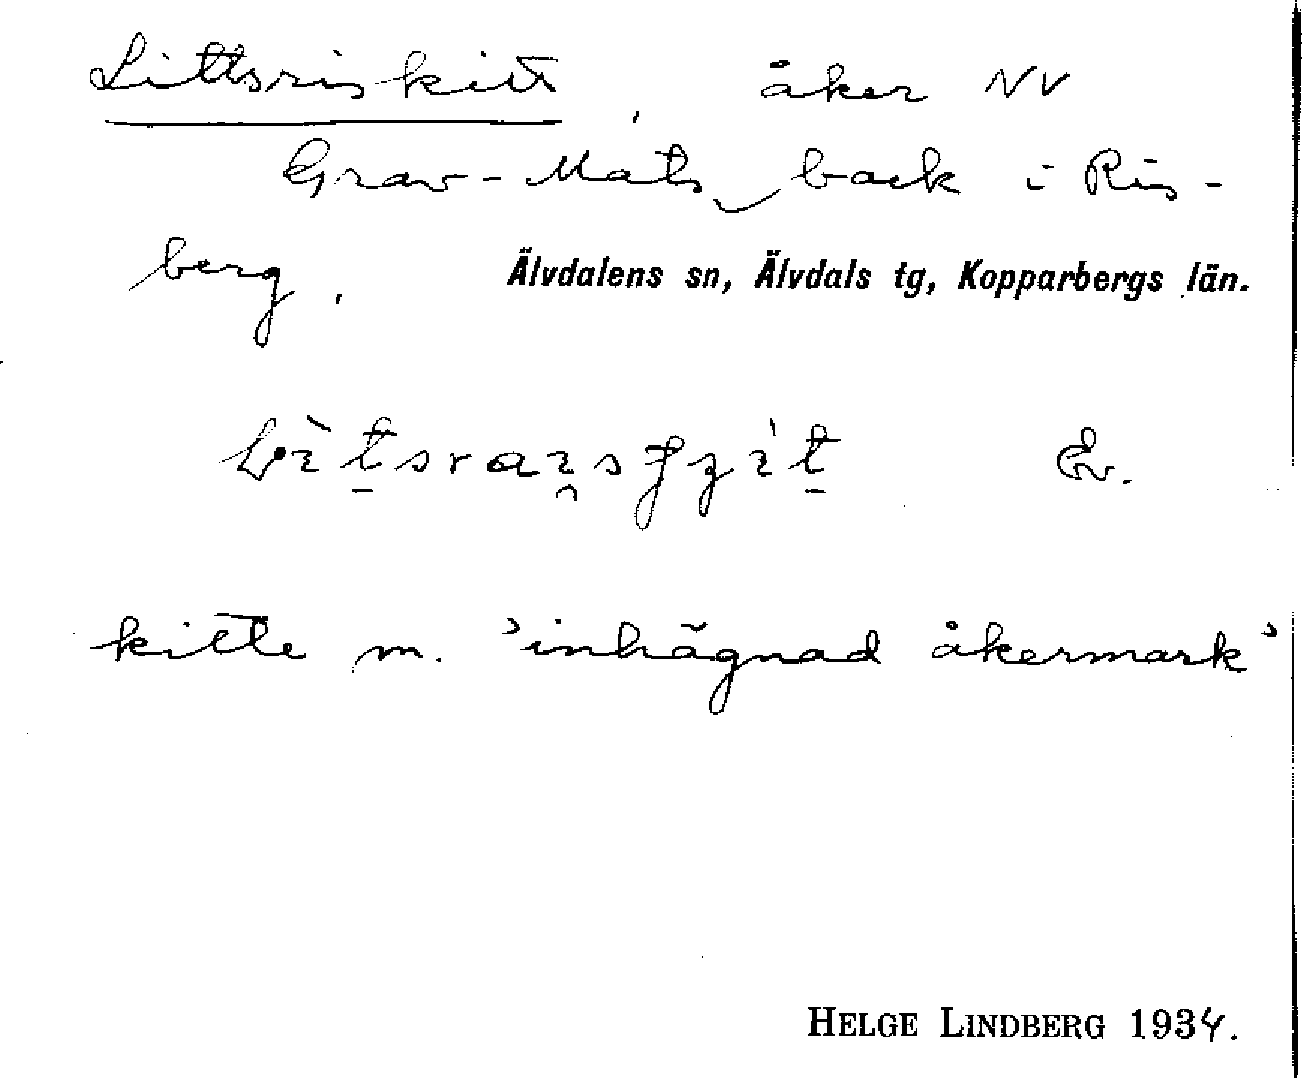 Littsriskitt, åker NV
Grav-Mats back i Ris-
berg.
Älvdalens sn, Älvdals tg, Kopparbergs län.
Ev.
kitte m. 'inhägnad åkermark'
HELGE LINDBERG 1934.